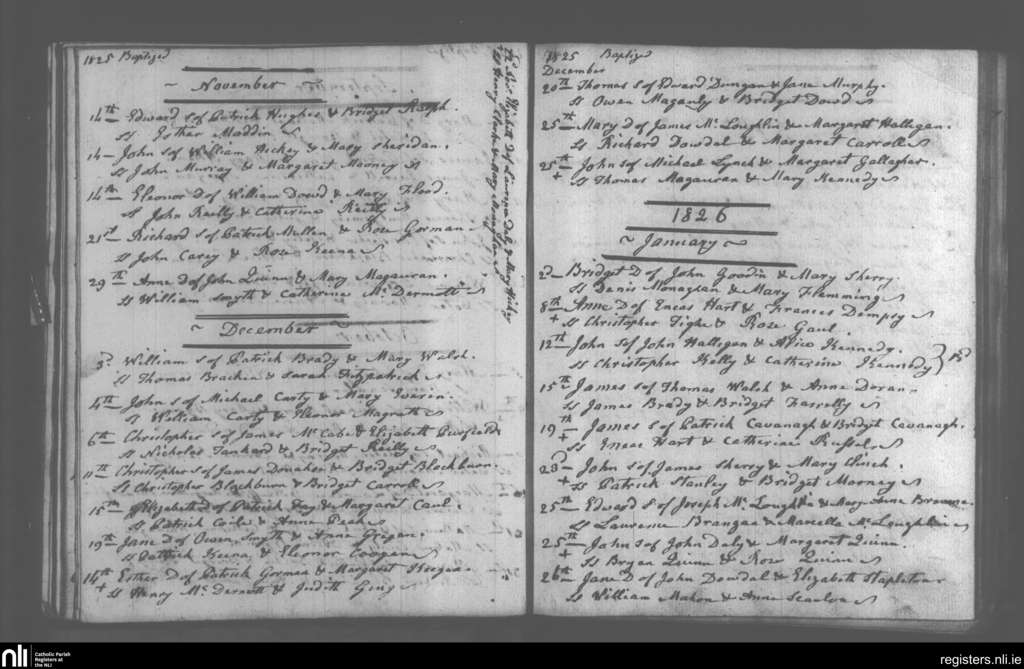 1825 Baptized
~ November ~
14th Edward S of Patrick Hughes & Bridget Ralph.
Ss Esther Maddin
14 John S of William Hickey & Mary Sheridan.
Ss John Murray & Margaret Mooney
14th Eleonor D of William Dowd & Mary Flood.
Ss John Reilly & Catherine Reilly
21st Richard S of Patrick Mullen & Rose Gorman
Ss John Carey & Rose Keena
29th Anne D of John Quinn & Mary Magauran.
Ss William Smyth & Catherine Mc Dermott
~ December ~
3d William S of Patrick Brady & Mary Walsh.
Ss Thomas Bracken & Sarah Fitzpatrick
4th John S of Michael Carty & Mary
Ss William Carty & Eleonor Magrath
6th Christopher S of James Mc Cabe & Elizabeth
Ss Nicholas Tankard & Bridget Reilly
11th Christopher S of James Donahoe & Bridget Blackburn.
Ss Christopher Blackburn & Bridget Carroll
15th Elizabeth D of Patrick Fay & Margaret Caul.
Ss Patrick Coile & Anne Peak
19th Jane D of Owen Smyth & Anne Grogan.
Ss Patrick Keena & Eleonor Coogan
14th Esther D of Patrick Gorman & Margaret Keegan
+ Ss Henry Mc Dermott & Judith Ging
Elizabeth D of Laurence Daly & Mary Hickey
Ss Henry Clarke & Mary Anne
1825 Baptized
December
20th Thomas S of Edward Dungan & Jane Murphy.
Ss Owen Maganly & Bridget Dowd
25th Mary D of James Mc Loughlin & Margaret Hallegan.
Ss Richard Dowdal & Margaret Carroll
25th John S of Michael Lynch & Margaret Gallagher.
+ Ss Thomas Magauran & Mary Kennedy
1826
~ January ~
2d Bridget D of John Goodin & Mary Sherry.
Ss Denis Monaghan & Mary Flemming
8th Anne D of Eneas Hart & Frances Dempsy
+ Ss Christopher Tighe & Rose Gaul.
12th John S of John Hallegan & Alice Kennedy.
Ss Christopher Kelly & Catherine Kennedy
15th James S of Thomas Walsh & Anne Doran
Ss James Brady & Bridget Farrelly
19th James S of Patrick Cavanagh & Bridget Cavanagh.
+ Ss Eneas Hart & Catherine Russel
23d John S of James Sherry & Mary Clinch.
+ Ss Patrick Stanley & Bridget Morney
25th Edward S of Joseph Mc Loughlin & Mary Anne Browne.
Ss Laurence Brangan & Marcella Mc Loughlin
25th John S of John Daly & Margaret Quinn.
+ Ss Bryan Quinn & Rose Quinn
26th Jane D of John Dowdal & Elizabeth Stapleton
Ss William Mahon & Anne Scanlon
nli Catholic Parish
Registers at
the NLI
registers.nli.ie